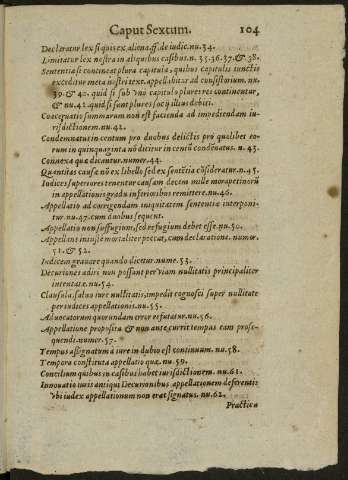 Caput Sextum. 104
Declaratur lex si quis ex aliena, ff. de iudic. nu. 34.
Limitatur lex nostra in aliquibus casibus. n. 35. 36. 37. & 38.
Sententia si contineat plura capitula, quibus capitulis iunctis
exceditur meta nostri text. appellabitur ad consistorium. nu.
39. & 40. quid si sub vno capitulo plures res continentur,
& nu. 41. quid si sunt plures socij illius debiti.
Coaceruatio summarum non est facienda ad impediendam iu-
risdictionem. nu. 42.
Condemnatus in centum pro duobus delictis pro quolibet eo-
rum in quinquaginta nō dicitur in centū condēnatus. n. 43.
Connexa quæ dicantur. numer. 44.
Quantitas causæ nō ex libello sed ex sentētia cōsideratur. n. 45.
Iudices superiores tenentur causam decem mille morapetinorū
in appellationis gradu inferioribus remittere. nu. 46.
Appellatio ad corrigendam iniquitatem sententiæ interponi-
tur. nu. 47. cum duobus sequent.
Appellatio non suffugium, sed refugium debet esse. nu. 50.
Appellens iniustè mortaliter peccat, cum declarationi. numer.
51. & 52.
Iudicem grauare quando dicetur. nume. 53.
Decuriones adiri non possunt per viam nullitatis principaliter
intentatæ. nu. 54.
Clausula, saluo iure nullitatis, impedit cognosci super nullitate
per iudices appellationis. nu. 55.
Aduocatorum quorundam error refutatur. nu. 56.
Appellatione proposita & non ante currit tempus eam prose-
quendi. numer. 57.
Tempus assignatum à iure in dubio est continuum. nu. 58.
Tempora constituta appellatio quæ. nu. 59.
Concilium quibus in casibus habet iurisdictionem. nu. 61.
Innouatio iuris antiqui Decurionibus appellationem deferentis
vbi iudex appellationum non erat signatus. nu. 62.
Practica